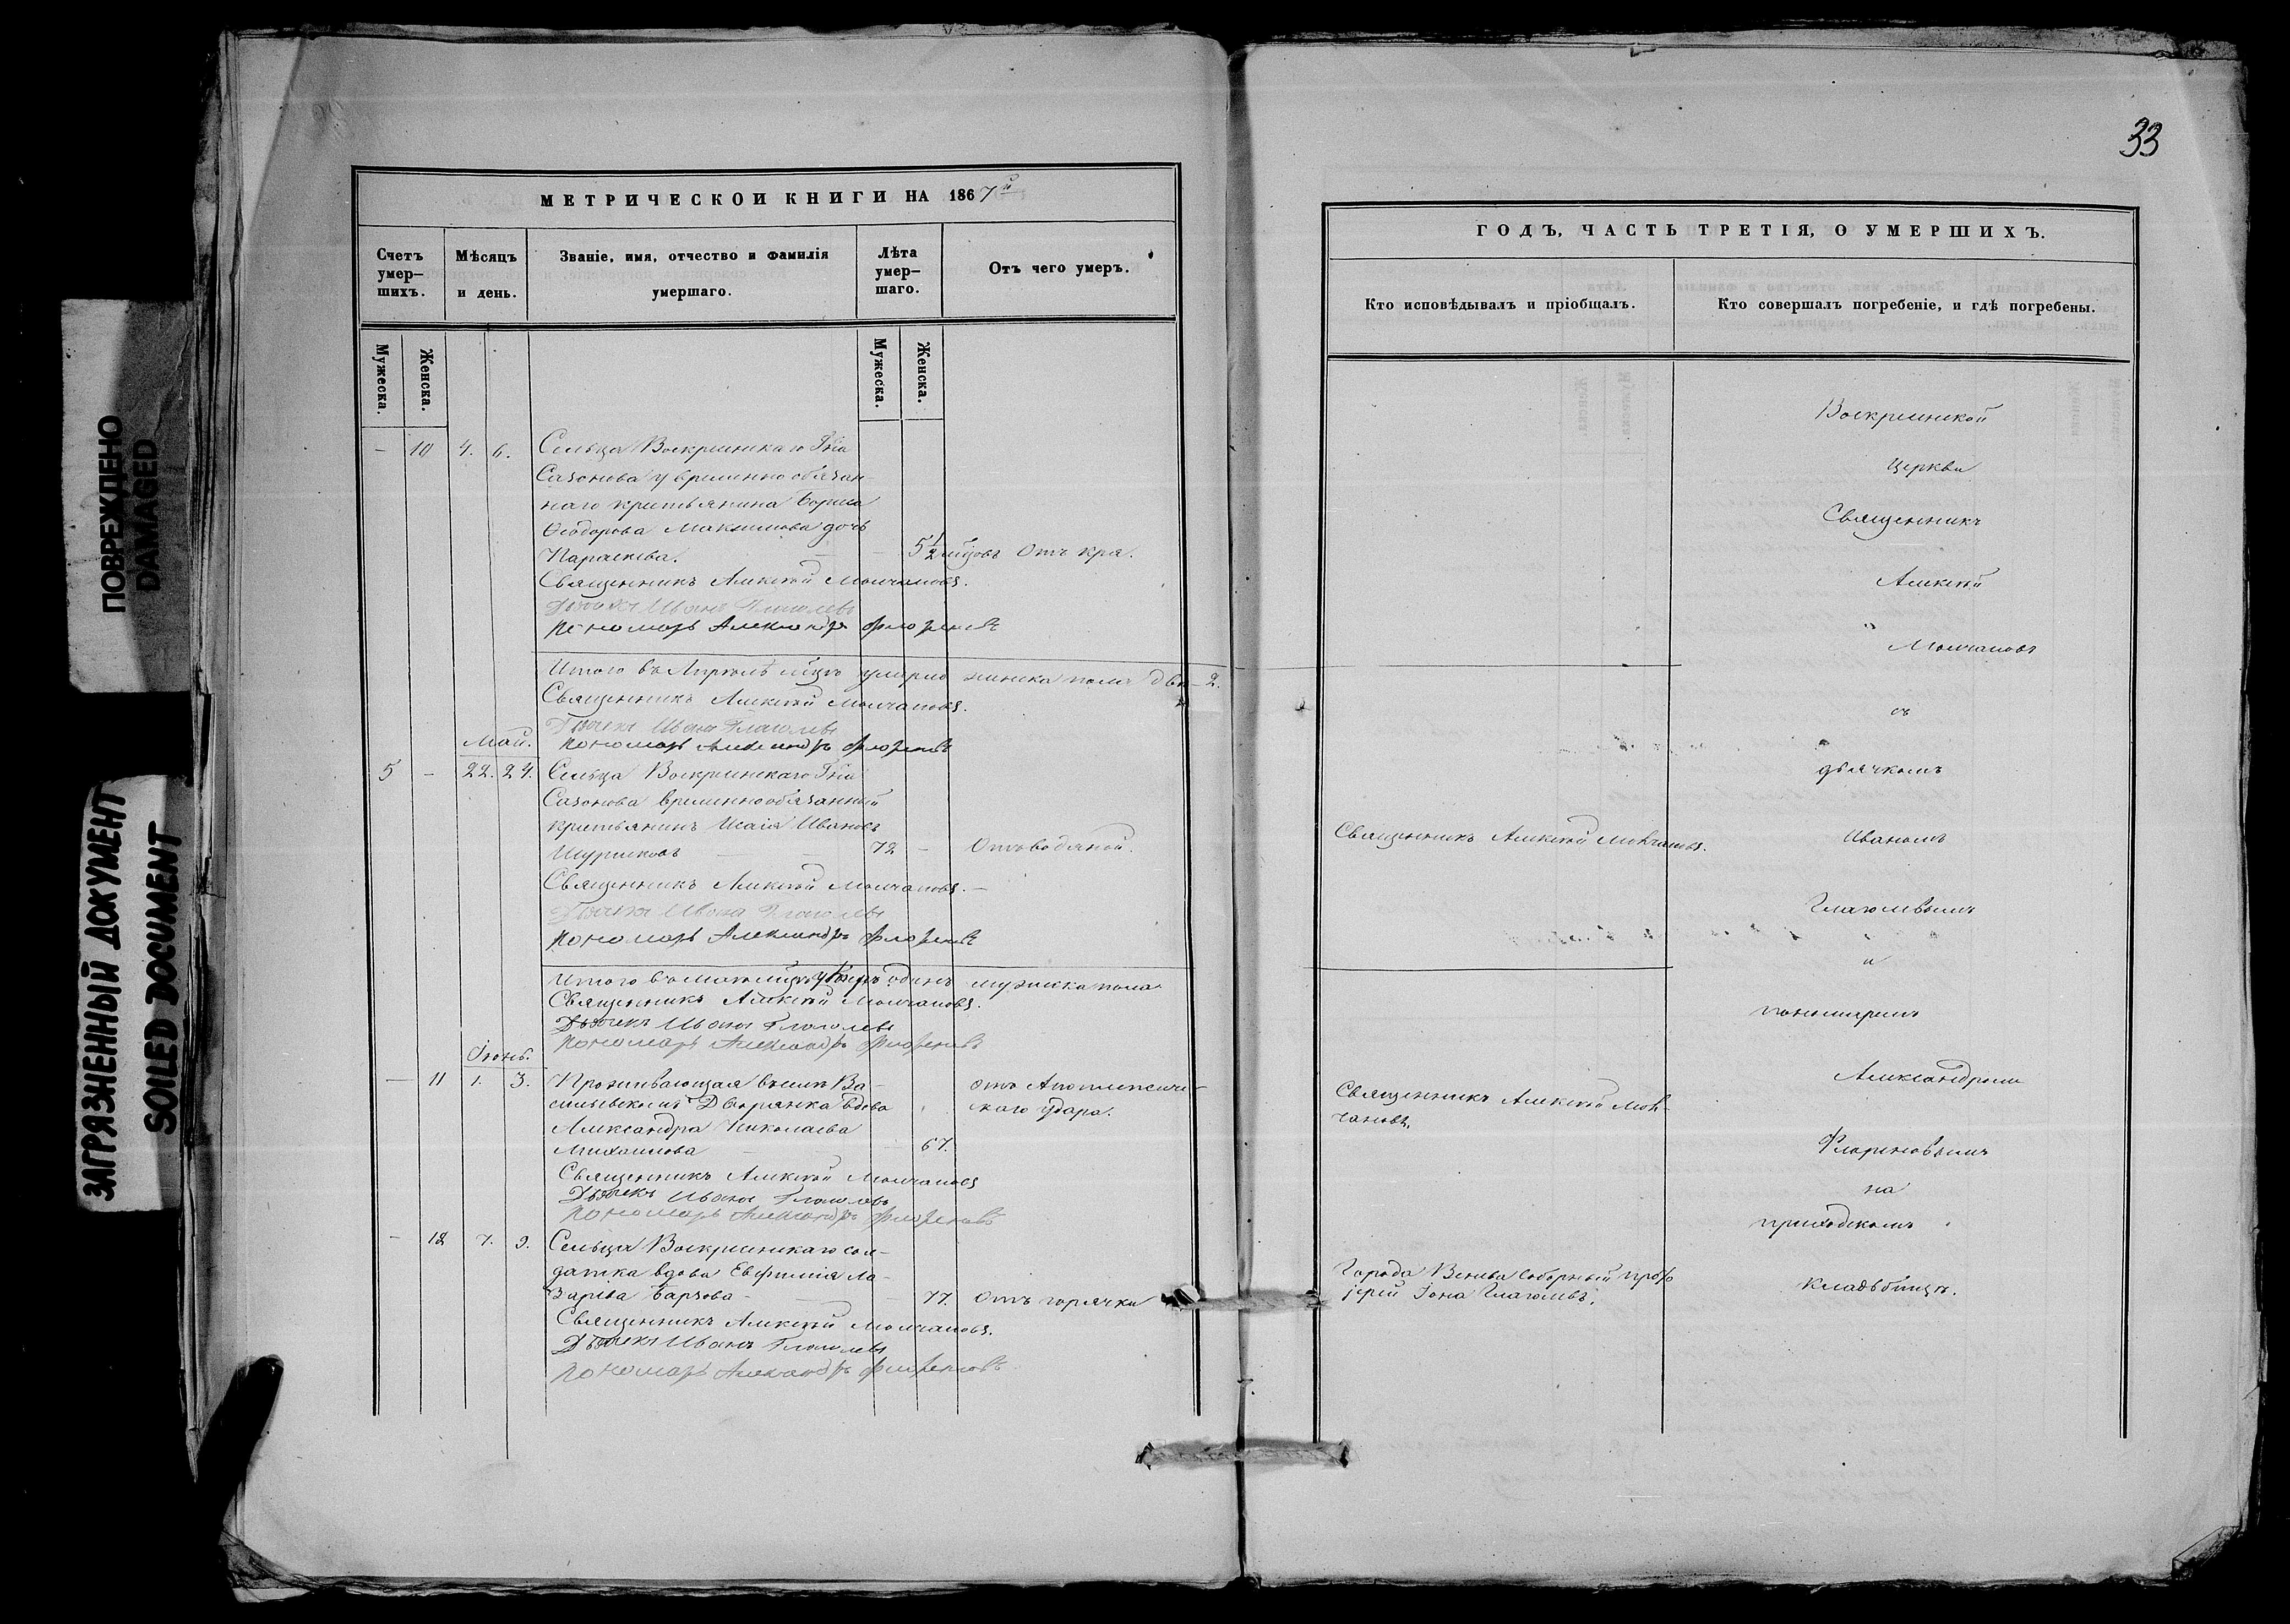 ПОВРЕЖДЕНО
DAMAGED
ЗАГРЯЗНЕННЫЙ ДОКУМЕНТ
SOILED DOCUMENT
МЕТРИЧЕСКОИ КНИГИ НА 1867й
Счетъ умер-шихъ.
Мѣсяцъ и день.
Званіе, имя, отчество и фамилія умершаго.
Лѣта умер-шаго.
Отъ чего умеръ.
Мужеска.
Женска.
Мужеска.
Женска.
— 10 4. 6. Сельца Воскресенскаго Гна
Сазонова у временно обязан-
наго крестьянина Бориса
Ѳеодорова Максимова дочь
Параскева. — — 5½ мцовъ Отъ кра.
Священникъ Алексѣй Молчановъ.
Дьячекъ Иванъ Глаголевъ
Пономарь Александръ Флореновъ
Итого въ Апрѣлѣ мцѣ умерло женска пола двѣ — 2.
Священникъ Алексѣй Молчановъ.
Дьячекъ Иванъ Глаголевъ
Май. Пономарь Александръ Флореновъ
5 — 22. 24. Сельца Воскресенскаго Гна
Сазонова временнообязанный
крестьянинъ Исаія Ивановъ
— — 72 — Отъ водяной.
Священникъ Алексѣй Молчановъ. —
Дьячекъ Иванъ Глаголевъ
Пономарь Александръ Флореновъ
Итого въ маѣ мцѣ умеръ одинъ мужеска пола
Священникъ Алексѣй Молчановъ.
Дьячекъ Иванъ Глаголевъ
Іюнь. Пономарь Александръ Флореновъ
— 11 1. 3. Проживающая въ селѣ Ва-
сильевскомъ Дворянка вдова
Александра Николаева
Михаилова — 67.
отъ Апоплексиче-
скаго удара.
Священникъ Алексѣй Молчановъ
Дьячекъ Иванъ Глаголевъ
Пономарь Александръ Флореновъ
— 12 7. 9. Сельца Воскресенскаго сол-
датка вдова Евфимія Ла-
зарева — — 77. Отъ горячки
Священникъ Алексѣй Молчановъ.
Дьячекъ Иванъ Глаголевъ
Пономарь Александръ Флореновъ
33
ГОДЪ, ЧАСТЬ ТРЕТІЯ, О УМЕРШИХЪ.
Кто исповѣдывалъ и пріобщалъ.
Кто совершалъ погребеніе, и гдѣ погребены.
Священникъ Алексѣй Молчановъ.
Священникъ Алексѣй Мол-
чановъ.
Города Венева Соборный Прото
іерей Іона Глаголевъ.
Воскресенской
церкви
Священникъ
Алексѣй
Молчановъ
съ
дьячкомъ
Иваномъ
Глаголевымъ
и
пономаремъ
Александромъ
Флореновымъ
на
приходскомъ
кладбищѣ.